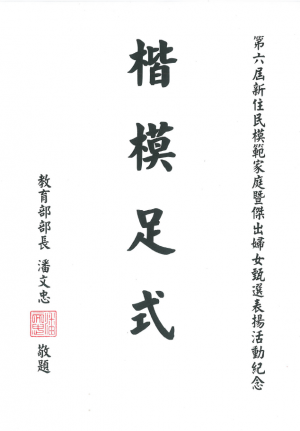 第六屆新住民模範家庭暨傑出婦女甄選表揚活動紀念
楷模足式
教育部部長 潘文忠 敬題